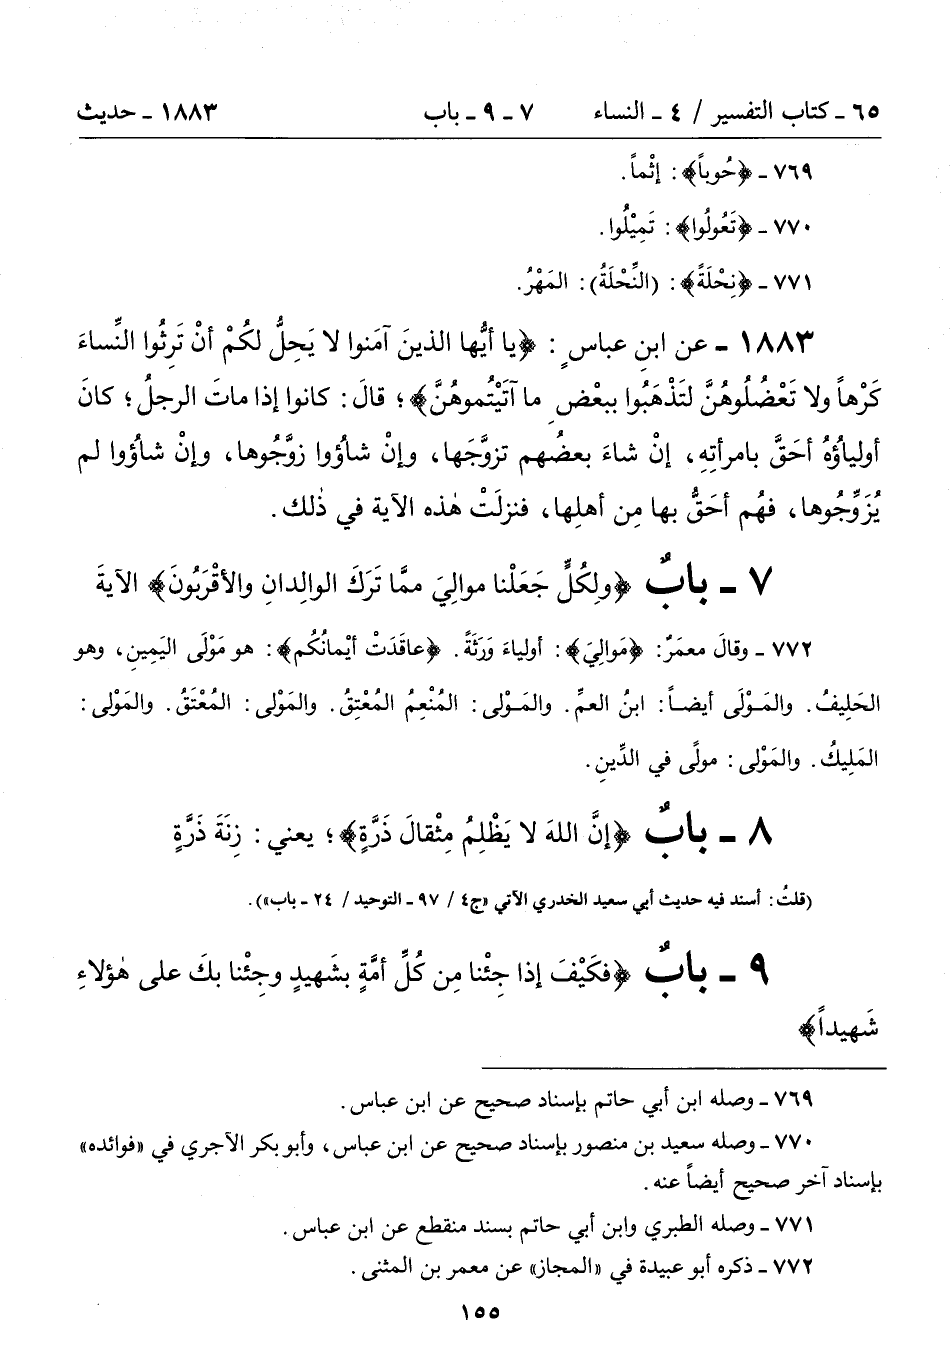 ٦٥ - كتاب التفسير / ٤ - النساء ٧ - ٩ - باب ١٨٨٣ - حديث
٧٦٩ - ﴿حُوباً﴾: إثْماً.
٧٧٠ - ﴿تَعُولُوا﴾: تَمِيْلُوا.
٧٧١ - ﴿نِحْلَةً﴾: (النِّحْلَةُ): المَهْرُ.
١٨٨٣ - عن ابنِ عباسٍ: ﴿يا أيُّها الذينَ آمَنوا لا يَحِلُّ لكُمْ أنْ تَرِثُوا النِّساءَ
كَرْهاً ولا تَعْضُلُوهُنَّ لتَذْهَبُوا ببعْضِ ما آتَيْتُموهُنَّ﴾؛ قالَ: كانوا إذا ماتَ الرجلُ؛ كانَ
أولياؤُهُ أحَقَّ بامرأتِهِ، إنْ شاءَ بعضُهم تزوَّجَها، وإنْ شاؤوا زوَّجُوها، وإنْ شاؤوا لم
يُزَوِّجُوها، فهُم أحَقُّ بها مِن أهلِها، فنزلَتْ هٰذه الآية في ذٰلك.
٧ - بابٌ ﴿ولِكُلٍّ جَعَلْنا موالِيَ ممَّا تَرَكَ الوالِدانِ والأقْرَبُونَ﴾ الآيةَ
٧٧٢ - وقالَ معمَرٌ: ﴿مَوالِيَ﴾: أولياءَ وَرَثَةً. ﴿عاقَدَتْ أيْمانُكُم﴾: هو مَوْلَى اليَمِينِ، وهو
الحَلِيفُ. والمَوْلَى أيضاً: ابنُ العمِّ. والمَوْلى: المُنْعِمُ المُعْتِقُ. والمَوْلى: المُعْتَقُ. والمَوْلى:
المَلِيكُ. والمَوْلى: مولًى في الدِّينِ.
٨ - بابٌ ﴿إنَّ اللهَ لا يَظْلِمُ مِثْقالَ ذَرَّةٍ﴾؛ يعني: زِنَةَ ذَرَّةٍ
(قلتُ: أسند فيه حديث أبي سعيد الخدري الآتي «ج٤ / ٩٧ - التوحيد / ٢٤ - باب»).
٩ - بابٌ ﴿فكَيْفَ إذا جِئْنا مِن كُلِّ أمَّةٍ بشَهيدٍ وجِئْنا بكَ على هٰؤلاءِ
شَهيداً﴾
٧٦٩ - وصله ابن أبي حاتم بإسناد صحيح عن ابن عباس.
٧٧٠ - وصله سعيد بن منصور بإسناد صحيح عن ابن عباس، وأبو بكر الآجري في «فوائده»
بإسناد آخر صحيح أيضاً عنه.
٧٧١ - وصله الطبري وابن أبي حاتم بسند منقطع عن ابن عباس.
٧٧٢ - ذكره أبو عبيدة في «المجاز» عن معمر بن المثنى.
١٥٥